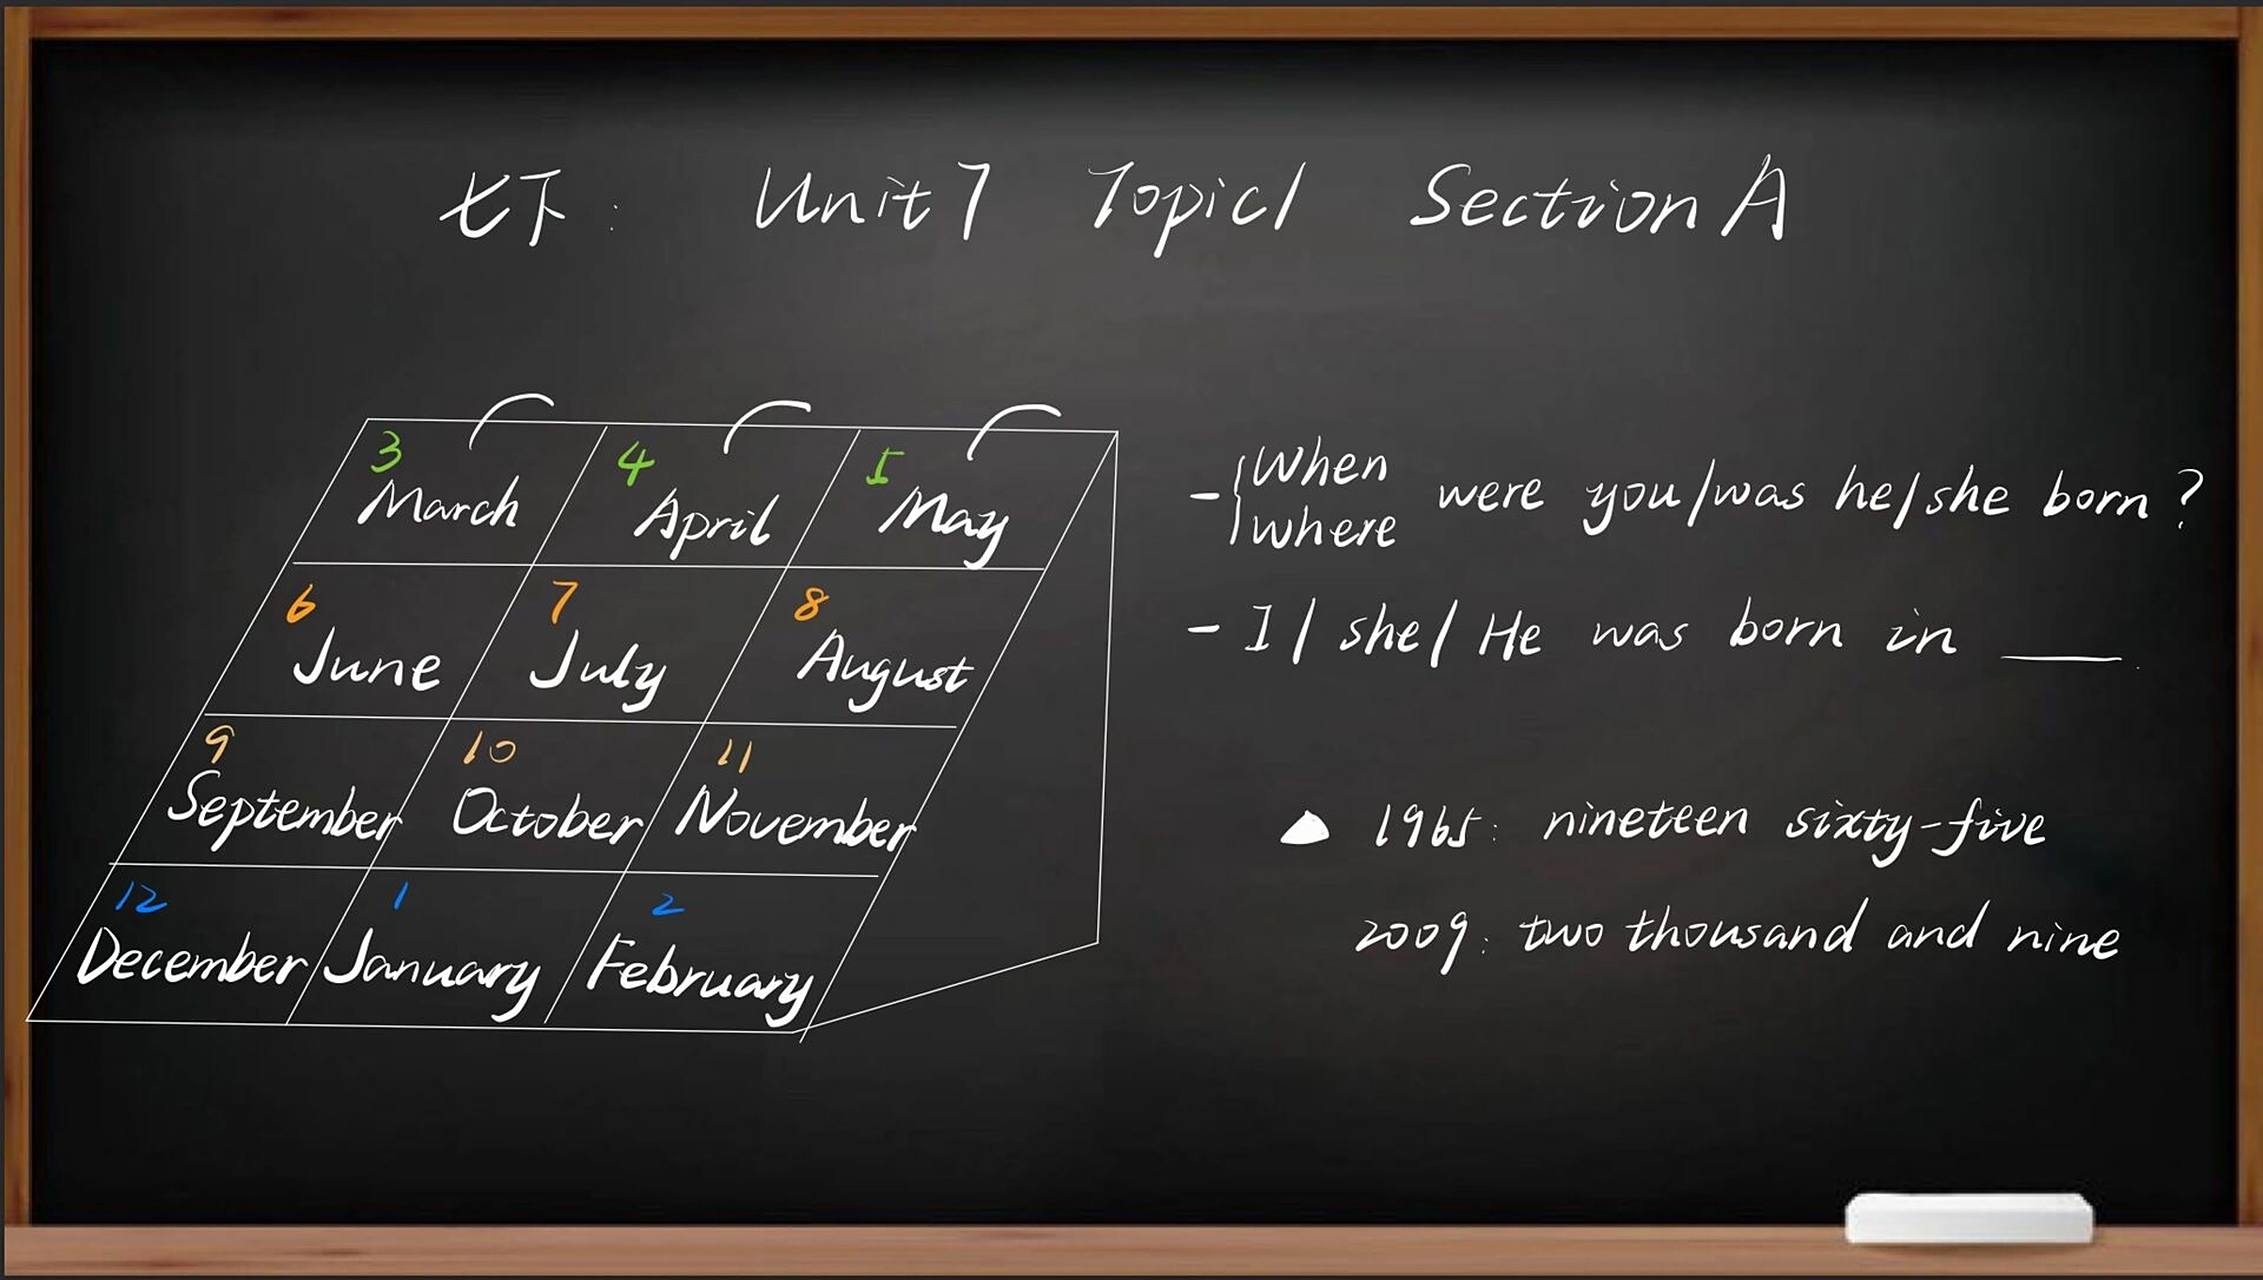 七下: Unit 7 Topic 1 Section A
3 4 5
March April May
6 7 8
June July August
9 10 11
September October November
12 1 2
December January February
- When
where were you/was he/she born?
- I/ she/ He was born in ___.
1965: nineteen sixty-five
2009: two thousand and nine